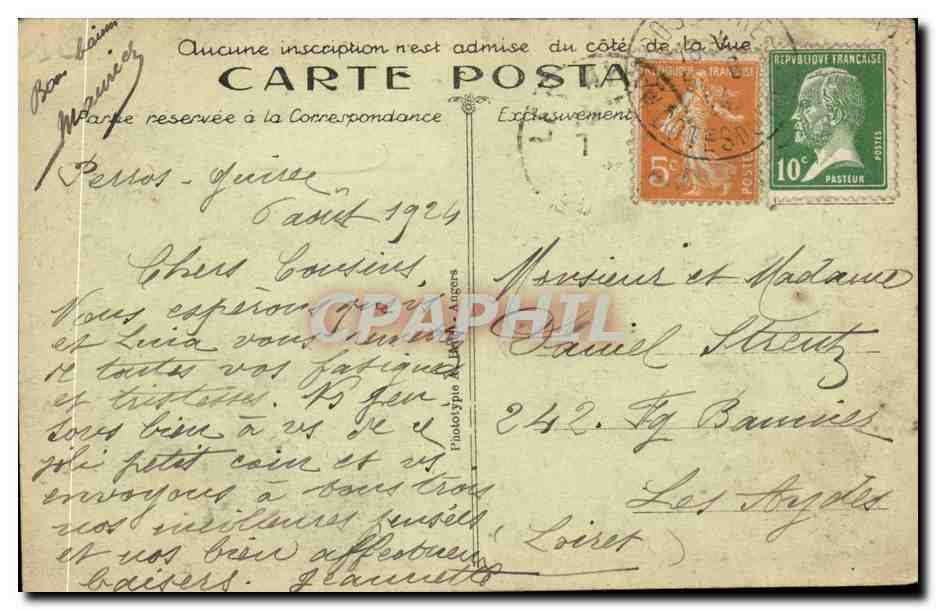 Bons baisers
Maurice
Aucune inscription n'est admise du côté de la Vue
CARTE POSTA
Partie reservée à la Correspondance
Exclusivement
REPVBLIQVE FRANÇAISE
5c
POSTES
REPVBLIQVE FRANÇAISE
10c
PASTEUR
POSTES
Perros-Guirec
6 août 1924
Chers Cousins,
Nous espérons que vs
et Lucia vous
de toutes vos fatigues
et tristesses. Ns pen
sons bien à vs de ce
joli petit coin et vs
envoyons à tous trois
nos meilleures pensées
et nos bien affectueux
baisers. Jeannette
Phototypie A. - Angers
Monsieur et Madame
Daniel Strentz
242. Fg Bannier
Les Aydes
(Loiret)
CPAPHIL